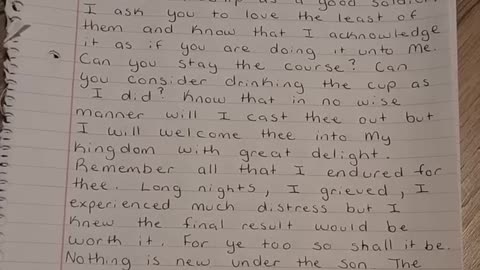 as a good soldier
I ask you to love the least of
them and know that I acknowledge
it as if you are doing it unto me.
Can you stay the course? Can
you consider drinking the cup as
I did? Know that in no wise
manner will I cast thee out but
I will welcome thee into my
kingdom with great delight.
Remember all that I endured for
thee. Long nights, I grieved, I
experienced much distress but I
knew the final result would be
worth it. For ye too so shall it be.
Nothing is new under the son. The